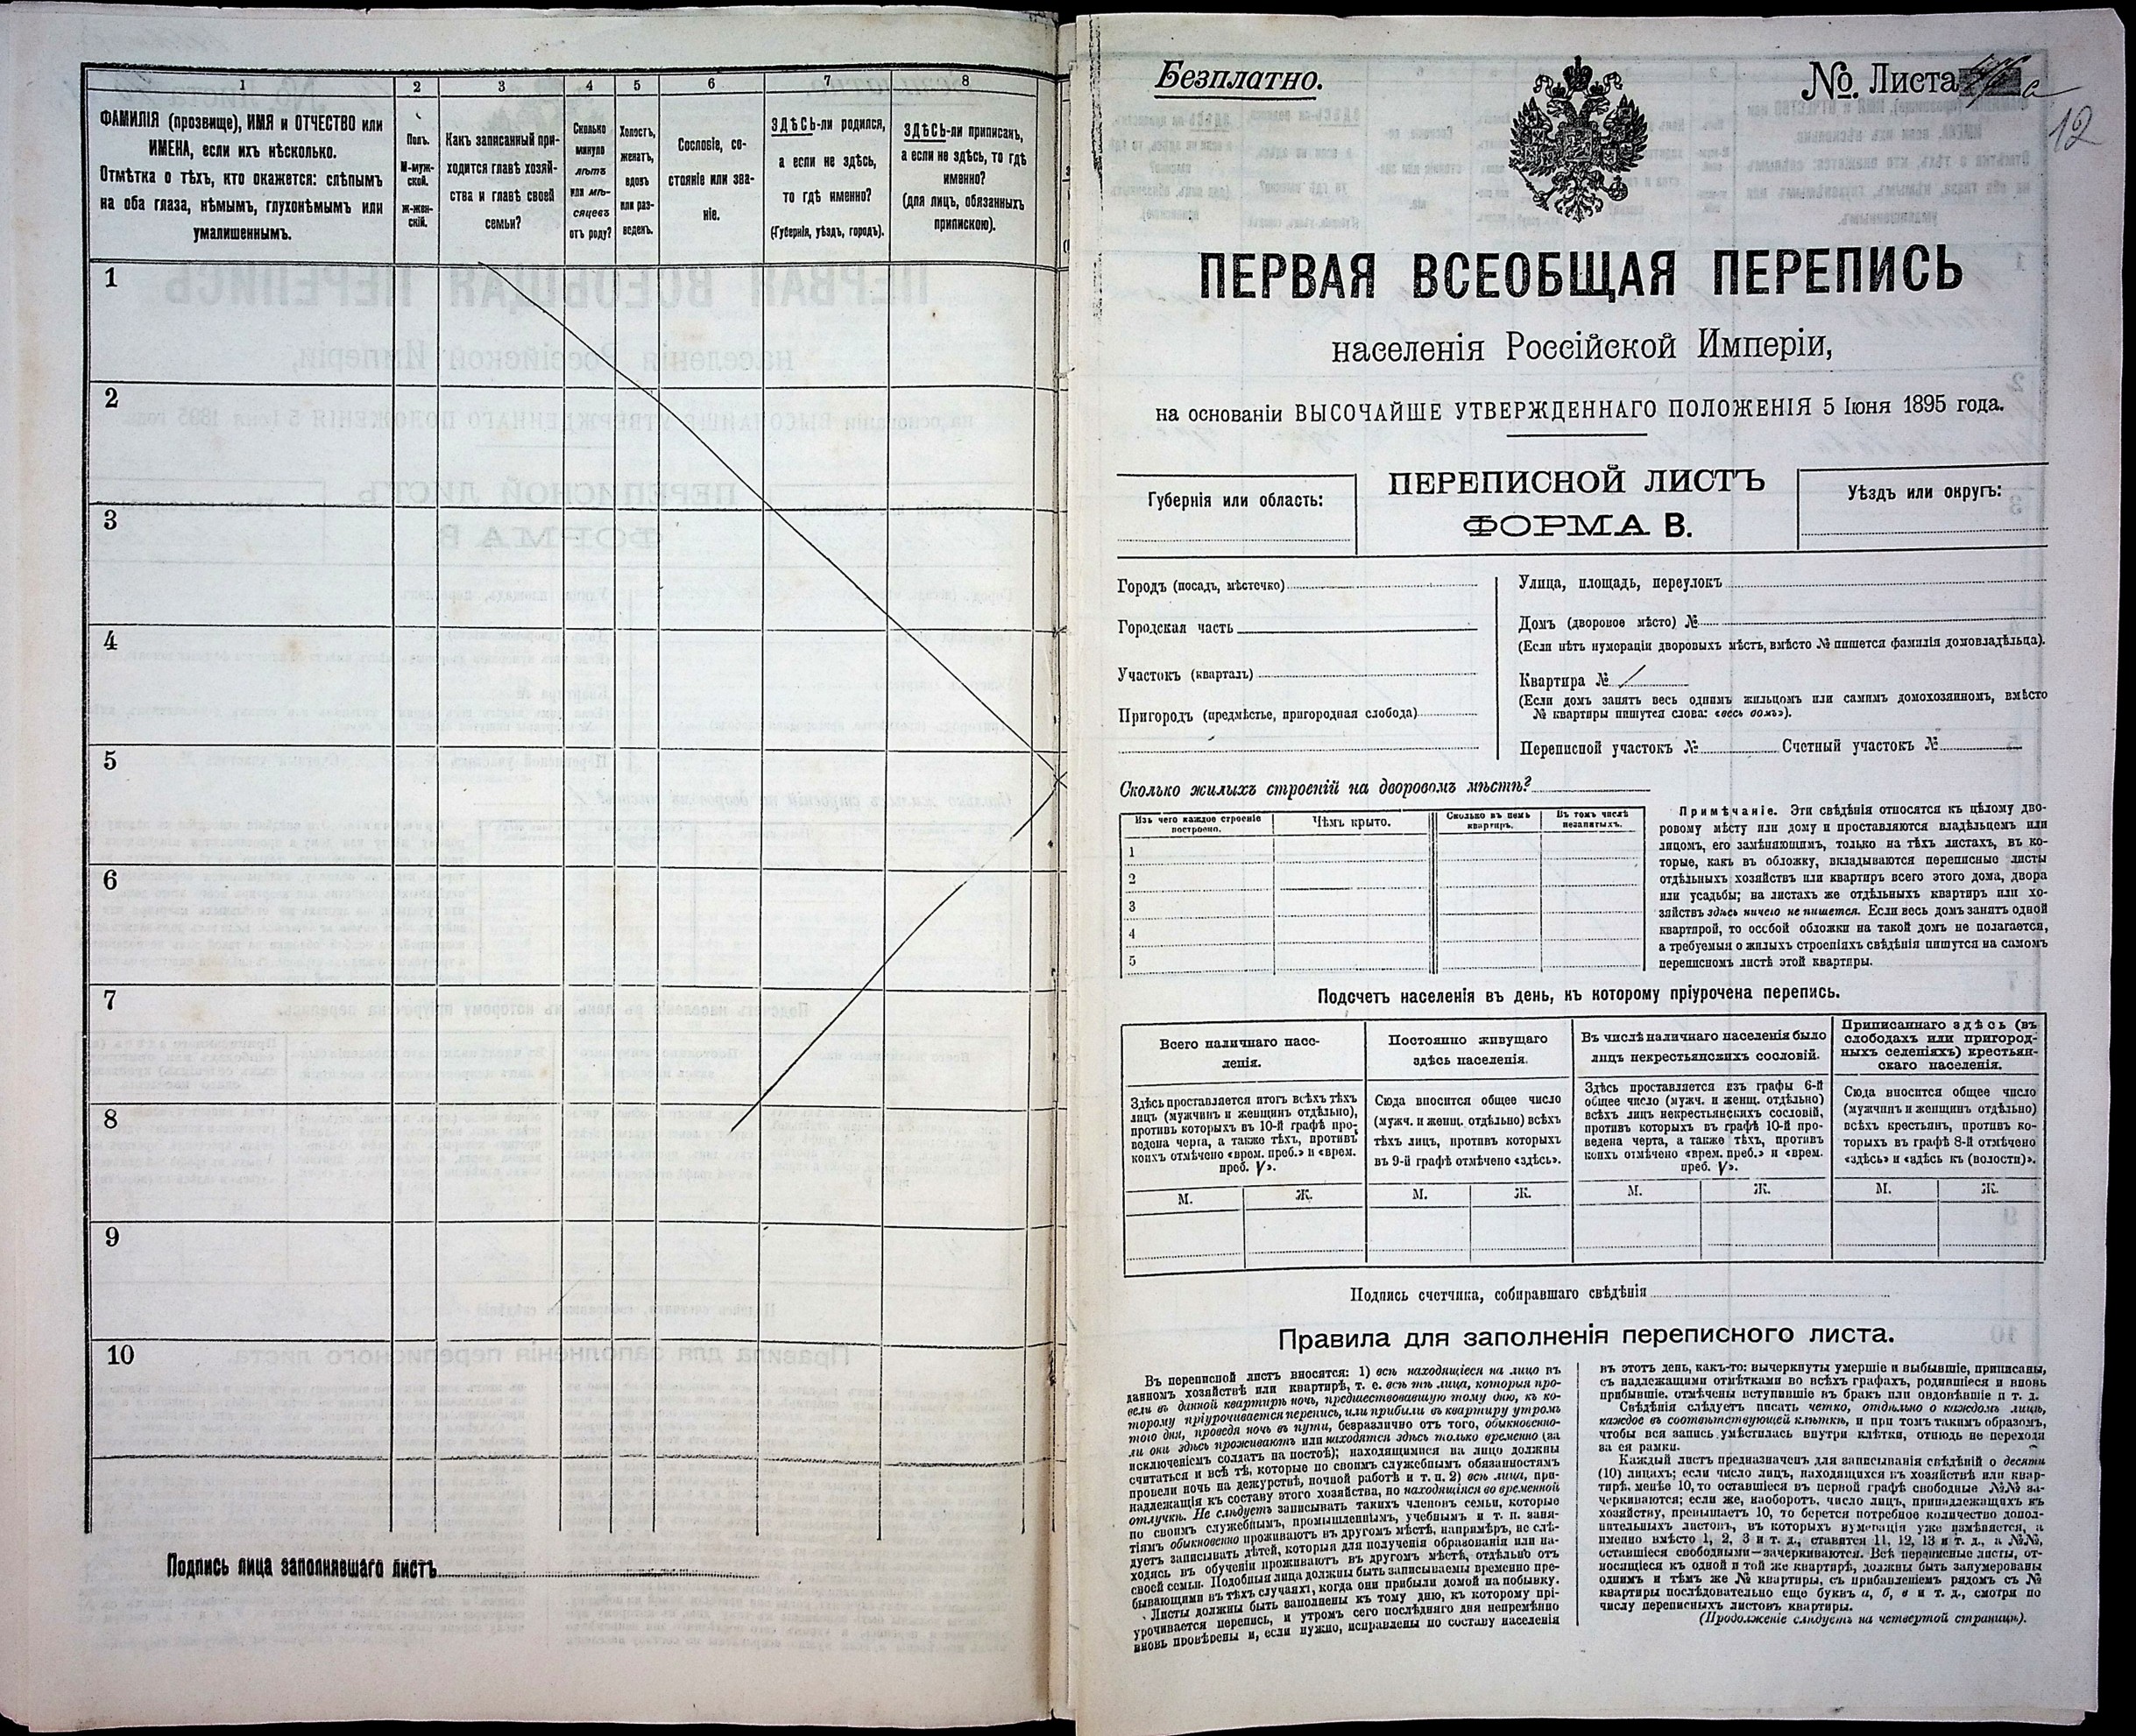 1
ФАМИЛІЯ (прозвище), ИМЯ и ОТЧЕСТВО или
ИМЕНА, если ихъ нѣсколько.
Отмѣтка о тѣхъ, кто окажется: слѣпымъ
на оба глаза, нѣмымъ, глухонѣмымъ или
умалишеннымъ.
2
Полъ.
М-муж-
ской.
ж-жен-
скій.
3
Какъ записанный при-
ходится главѣ хозяй-
ства и главѣ своей
семьи?
4
Сколько
минуло
лѣтъ
или мѣ-
сяцевъ
отъ роду?
5
Холостъ,
женатъ,
вдовъ
или раз-
веденъ.
6
Сословіе, со-
стояніе или зва-
ніе.
7
ЗДѢСЬ-ли родился,
а если не здѣсь,
то гдѣ именно?
(Губернія, уѣздъ, городъ).
8
ЗДѢСЬ-ли приписанъ,
а если не здѣсь, то гдѣ
именно?
(для лицъ, обязанныхъ
припискою).
1
2
3
4
5
6
7
8
9
10
Подпись лица заполнявшаго листъ
Безплатно.
№. Листа
а
12
ПЕРВАЯ ВСЕОБЩАЯ ПЕРЕПИСЬ
населенія Россійской Имперіи,
на основаніи ВЫСОЧАЙШЕ УТВЕРЖДЕННАГО ПОЛОЖЕНІЯ 5 Іюня 1895 года.
Губернія или область:
ПЕРЕПИСНОЙ ЛИСТЪ
ФОРМА В.
Уѣздъ или округъ:
Городъ (посадъ, мѣстечко)
Городская часть
Участокъ (кварталъ)
Пригородъ (предмѣстье, пригородная слобода)
Улица, площадь, переулокъ
Домъ (дворовое мѣсто) №
(Если нѣтъ нумораціи дворовыхъ мѣстъ, вмѣсто № пишется фамилія домовладѣльца).
Квартира №
(Если домъ занятъ весь однимъ жильцомъ или самимъ домохозяиномъ, вмѣсто
№ квартиры пишутся слова: «весь домъ»).
Переписной участокъ № Счетный участокъ №
Сколько жилыхъ строеній на дворовомъ мѣстѣ?
Изъ чего каждое строеніе
построено.
Чѣмъ крыто.
Сколько въ немъ
квартиръ.
Въ томъ числѣ
незанятыхъ.
1
2
3
4
5
Примѣчаніе. Эти свѣдѣнія относятся къ цѣлому дво-
ровому мѣсту или дому и проставляются владѣльцемъ или
лицомъ, его замѣняющимъ, только на тѣхъ листахъ, въ ко-
торые, какъ въ обложку, вкладываются переписные листы
отдѣльныхъ хозяйствъ или квартиръ всего этого дома, двора
или усадьбы; на листахъ же отдѣльныхъ квартиръ или хо-
зяйствъ здѣсь ничего не пишется. Если весь домъ занятъ одной
квартирой, то особой обложки на такой домъ не полагается,
а требуемыя о жилыхъ строеніяхъ свѣдѣнія пишутся на самомъ
переписномъ листѣ этой квартиры.
Подсчетъ населенія въ день, къ которому пріурочена перепись.
Всего наличнаго насе-
ленія.
Здѣсь проставляется итогъ всѣхъ тѣхъ
лицъ (мужчинъ и женщинъ отдѣльно),
противъ которыхъ въ 10-й графѣ про-
ведена черта, а также тѣхъ, противъ
коихъ отмѣчено «врем. преб.» и «врем.
преб. V».
М. Ж.
Постоянно живущаго
здѣсь населенія.
Сюда вносится общее число
(мужч. и женщ. отдѣльно) всѣхъ
тѣхъ лицъ, противъ которыхъ
въ 9-й графѣ отмѣчено «здѣсь».
М. Ж.
Въ числѣ наличнаго населенія было
лицъ некрестьянскихъ сословій.
Здѣсь проставляется изъ графы 6-й
общее число (мужч. и женщ. отдѣльно)
всѣхъ лицъ некрестьянскихъ сословій,
противъ которыхъ въ графѣ 10-й про-
ведена черта, а также тѣхъ, противъ
коихъ отмѣчено «врем. преб.» и «врем.
преб. V».
М. Ж.
Приписаннаго здѣсь (въ
слободахъ или пригород-
ныхъ селеніяхъ) крестьян-
скаго населенія.
Сюда вносится общее число
(мужчинъ и женщинъ отдѣльно)
всѣхъ крестьянъ, противъ ко-
торыхъ въ графѣ 8-й отмѣчено
«здѣсь» и «здѣсь къ (волости)».
М. Ж.
Подпись счетчика, собиравшаго свѣдѣнія
Правила для заполненія переписного листа.
Въ переписной листъ вносятся: 1) всѣ находящіеся на лицо въ
данномъ хозяйствѣ или квартирѣ, т. е. всѣ тѣ лица, которыя про-
вели въ данной квартирѣ ночь, предшествовавшую тому дню, къ ко-
торому пріурочивается перепись, или прибыли въ квартиру утромъ
того дня, проведя ночь въ пути, безразлично отъ того, обыкновенно-
ли они здѣсь проживаютъ или находятся здѣсь только временно (за
исключеніемъ солдатъ на постоѣ); находящимися на лицо должны
считаться и всѣ тѣ, которые по своимъ служебнымъ обязанностямъ
провели ночь на дежурствѣ, ночной работѣ и т. п. 2) всѣ лица, при-
надлежащія къ составу этого хозяйства, но находящіяся во временной
отлучкѣ. Не слѣдуетъ записывать такихъ членовъ семьи, которые
по своимъ служебнымъ, промышленнымъ, учебнымъ и т. п. заня-
тіямъ обыкновенно проживаютъ въ другомъ мѣстѣ, напримѣръ, не слѣ-
дуетъ записывать дѣтей, которыя для полученія образованія или на-
ходясь въ обученіи проживаютъ въ другомъ мѣстѣ, отдѣльно отъ
своей семьи. Подобныя лица должны быть записываемы временно пре-
бывающими въ тѣхъ случаяхъ, когда они прибыли домой на побывку.
Листы должны быть заполнены къ тому дню, къ которому прі-
урочивается перепись, и утромъ сего послѣдняго дня непремѣнно
вновь провѣрены и, если нужно, исправлены по составу населенія
въ этотъ день, какъ-то: вычеркнуты умершіе и выбывшіе, приписаны,
съ надлежащими отмѣтками во всѣхъ графахъ, родившіеся и вновь
прибывшіе, отмѣчены вступившіе въ бракъ или овдовѣвшіе и т. д.
Свѣдѣнія слѣдуетъ писать четко, отдѣльно о каждомъ лицѣ,
каждое въ соотвѣтствующей клѣткѣ, и при томъ такимъ образомъ,
чтобы вся запись умѣстилась внутри клѣтки, отнюдь не переходя
за ея рамки.
Каждый листъ предназначенъ для записыванія свѣдѣній о десяти
(10) лицахъ; если число лицъ, находящихся въ хозяйствѣ или квар-
тирѣ, менѣе 10, то оставшіеся въ первой графѣ свободные №№ за-
черкиваются; если же, наоборотъ, число лицъ, принадлежащихъ къ
хозяйству, превышаетъ 10, то берется потребное количество допол-
нительныхъ листовъ, въ которыхъ нумерація уже измѣняется, а
именно вмѣсто 1, 2, 3 и т. д., ставятся 11, 12, 13 и т. д., а №№,
оставшіеся свободными—зачеркиваются. Всѣ переписные листы, от-
носящіеся къ одной и той же квартирѣ, должны быть занумерованы
однимъ и тѣмъ же № квартиры, съ прибавленіемъ рядомъ съ №
квартиры послѣдовательно еще буквъ а, б, в и т. д., смотря по
числу переписныхъ листовъ квартиры.
(Продолженіе слѣдуетъ на четвертой страницѣ).